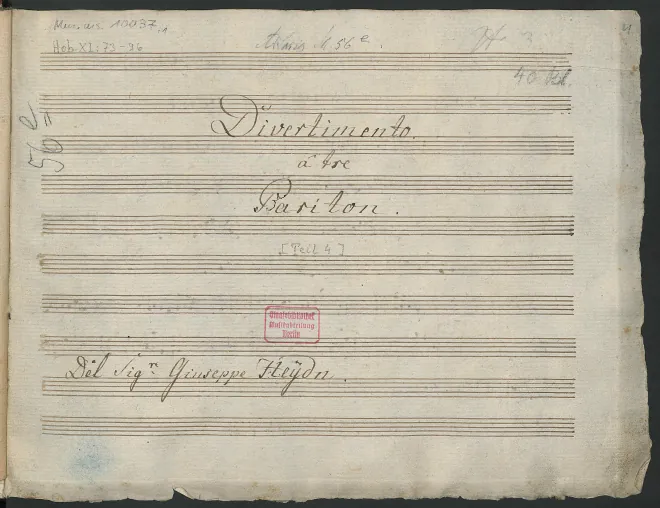 Mus. ms. 10037,1
Hob XI: 73-96
M. 56 e.
56 e
40 Bl.
Divertimento.
à tre
Bariton.
[Teil 4]
Staatsbibliothek
Musikabteilung
Berlin
Del Sigre Giuseppe Heÿdn.